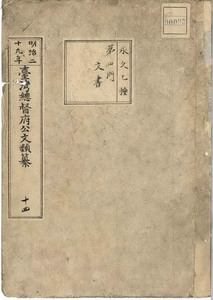 永久乙種
第四門
文書
明治二
十九年
臺灣總督府公文類纂
十四